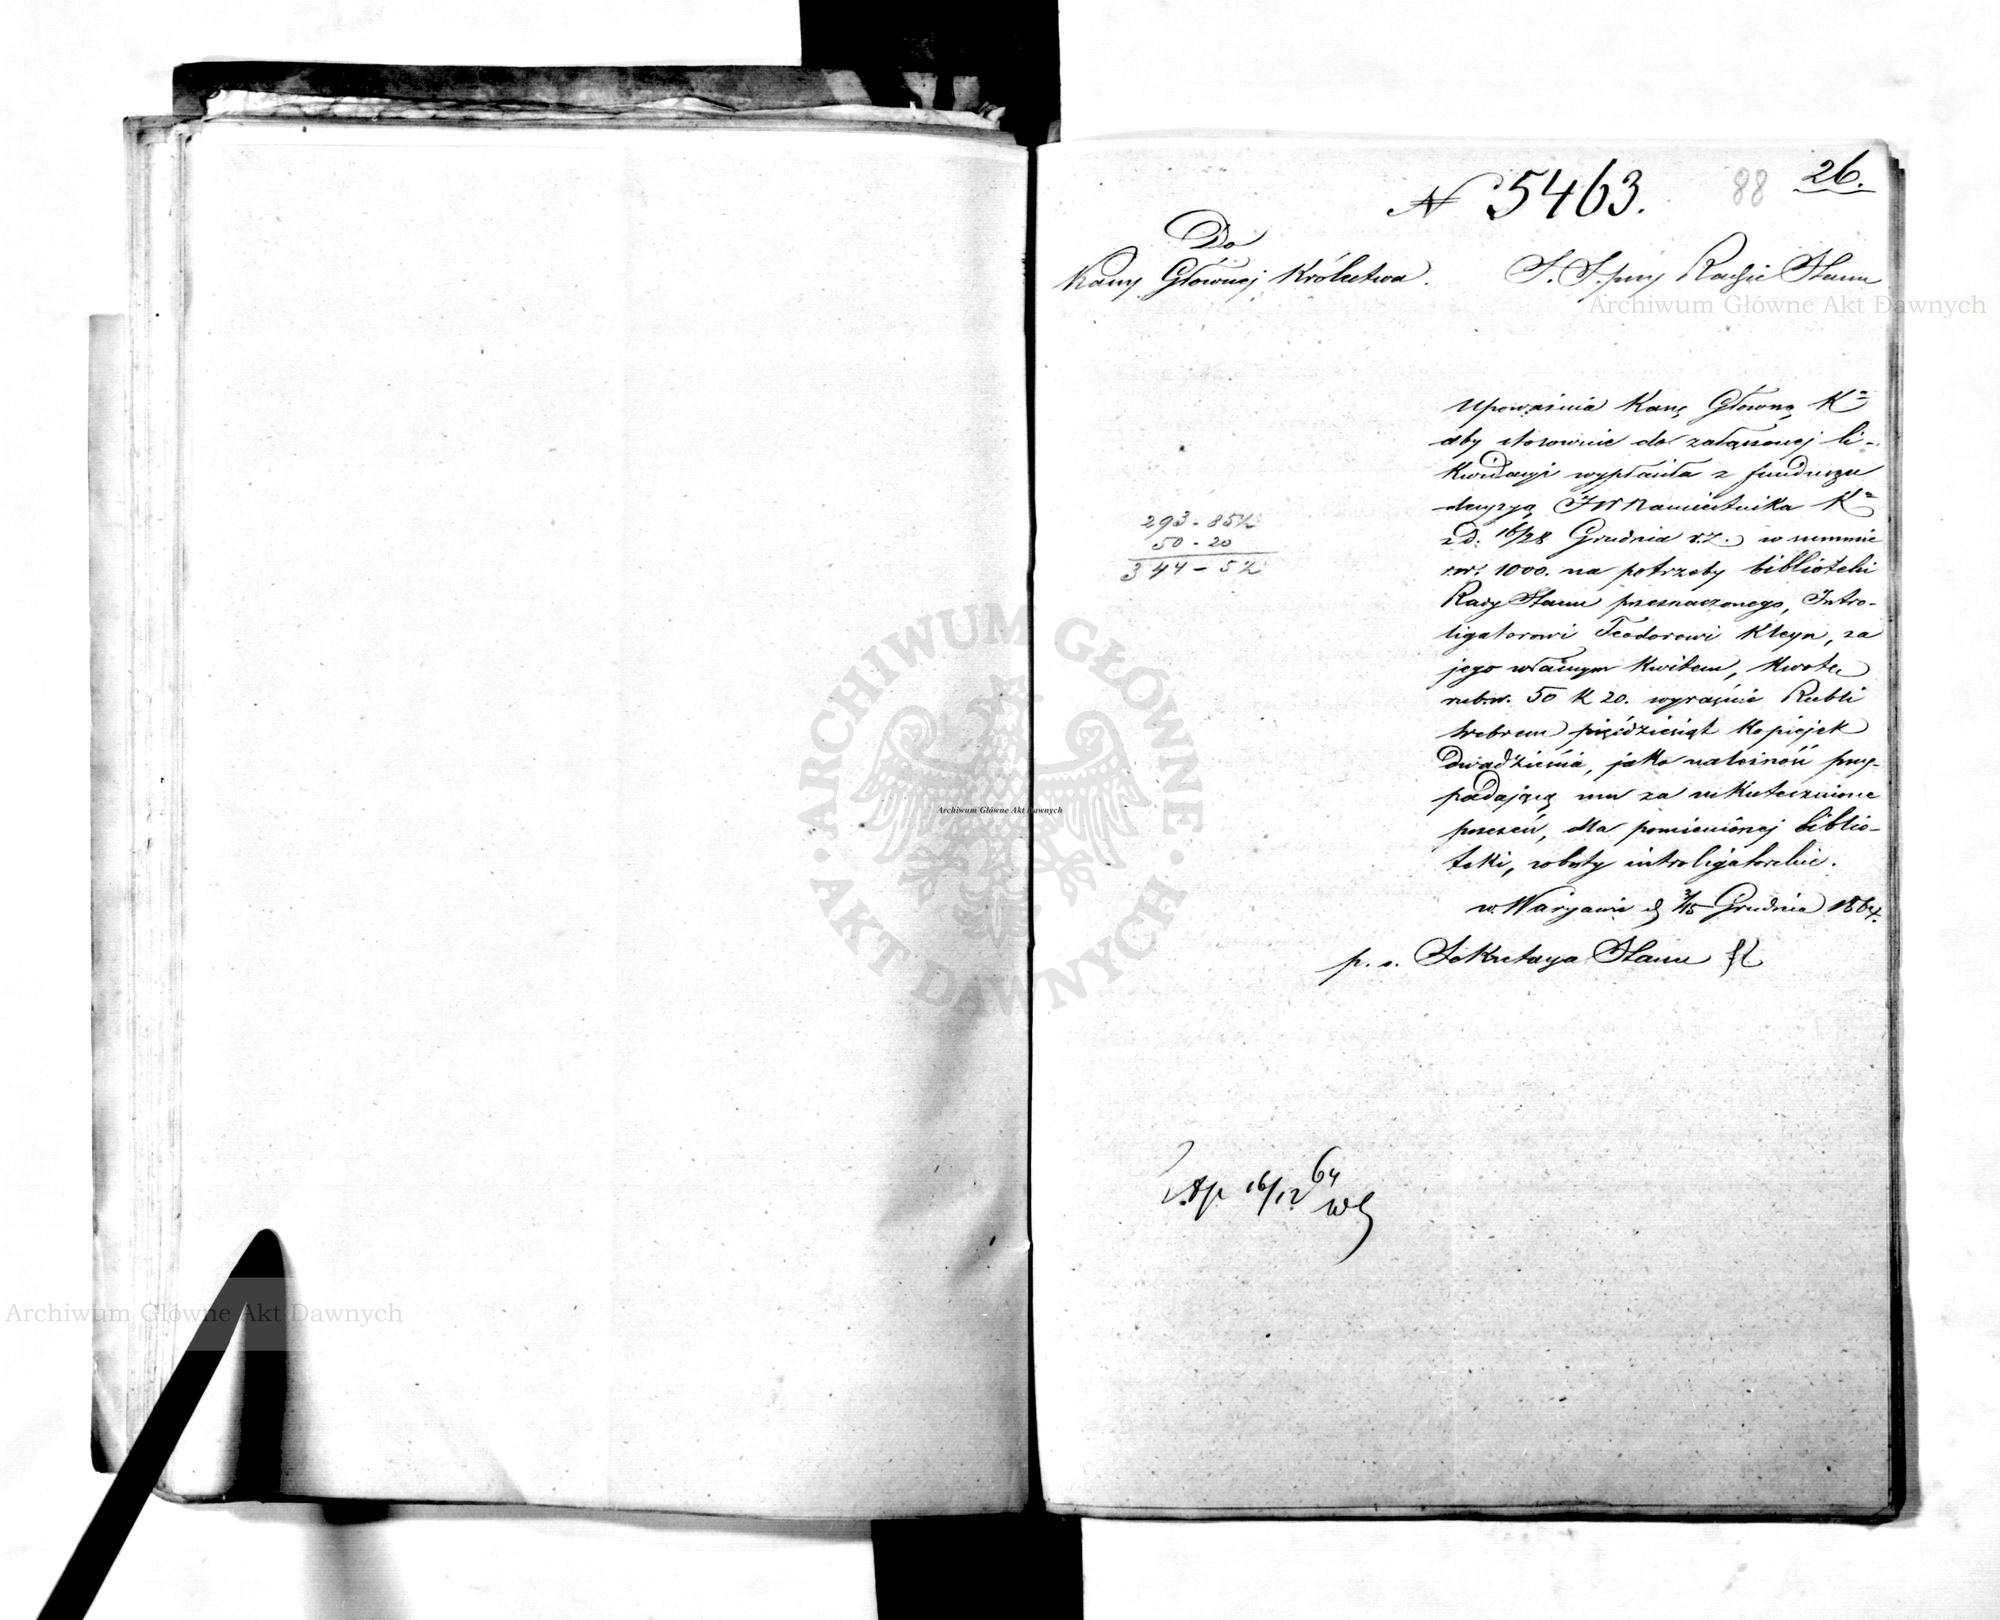 N 5463.
88
26.
Do
Kassy Głównej Królestwa.
S. S. przy Radzie Stanu
Upoważnia Kassę Główną Kª
aby stosownie do załączonej li-
kwidacyi wypłaciła z funduszu
decyzyą JW Namiestnika Kª
z d. 16/28 Grudnia r.z. w summie
rsr. 1000. na potrzeby biblioteki
Rady Stanu przeznaczonego, Intro-
ligatorowi Teodorowi Kleyn, za
jego własnym kwitem, kwotę
rub.sr. 50 k 20. wyraźnie Rubli
srebrem pięćdziesiąt kopiejek
Dwadzieścia, jako należność przy-
padającą mu za uskutecznione
przezeń, dla pomienionej biblio-
teki, roboty introligatorskie.
w Warszawie d 3/15 Grudnia 1864.
p. o. Sekretarza Stanu
293 - 85½
50 - 20
344 - 5½
16/12 64
Archiwum Główne Akt Dawnych
Archiwum Główne Akt Dawnych
Archiwum Główne Akt Dawnych
ARCHIWUM GŁÓWNE
AKT DAWNYCH